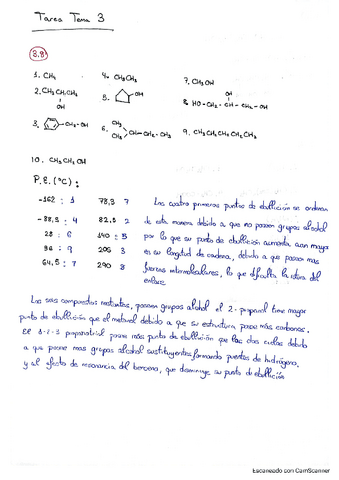 Tarea Tema 3
3.8
1. CH4
4. CH3CH3
7. CH3OH
2. CH3CHCH3
OH
5. OH
8. HO-CH2-CH-CH2-OH
OH
3. CH2-OH
6. CH3
CH3 CH-CH2-CH3
9. CH3CH2CH2CH2CH3
10. CH3CH2OH
P.E.(ºC):
-162 : 1 78,3 7
-88,3 : 4 82,5 2
28 : 6 140 : 5
36 : 9 205 3
64,5 : 7 290 8
Los cuatro primeros puntos de ebullición se ordenan
de esta manera debido a que no poseen grupos alcohol
por lo que su punto de ebullición aumenta cuan mayor
es su longitud de cadena, debido a que posean mas
fuerzas intermoleculares, lo que dificulta la rotura del
enlace.
Los seis compuestos restantes, poseen grupos alcohol el 2-propanol tiene mayor
punto de ebullición que el metanol debido a que su estructura posee más carbonos.
El 1-2-3 propanotriol posee más punto de ebullición que los dos ciclos debido
a que posee mas grupos alcohol sustituyentes formando puentes de hidrógeno,
y al efecto de resonancia del benceno, que disminuye su punto de ebullición
Escaneado con CamScanner